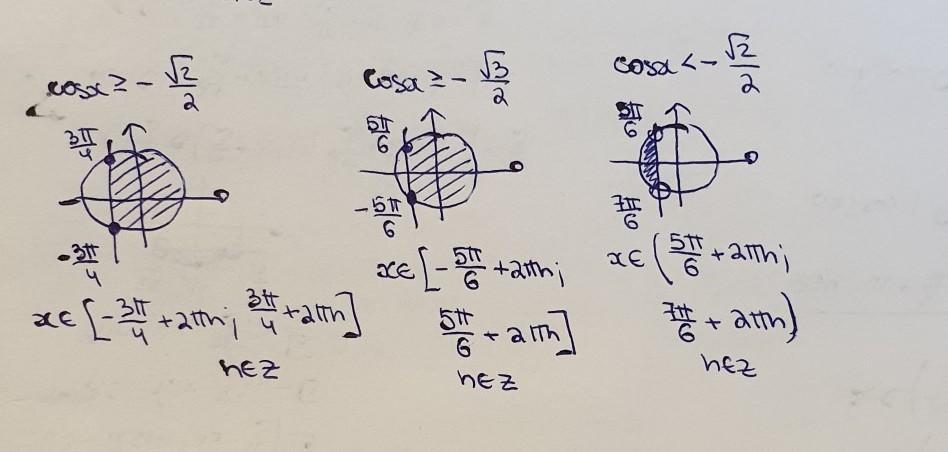 cosx ≥ - √2/2
3π/4
-3π/4
x∈[-3π/4 + 2πn; 3π/4 + 2πn]
n∈Z
cosx ≥ - √3/2
5π/6
-5π/6
x∈[-5π/6 + 2πn;
5π/6 + 2πn]
n∈Z
cosx < - √2/2
5π/6
7π/6
x∈(5π/6 + 2πn;
7π/6 + 2πn)
n∈Z